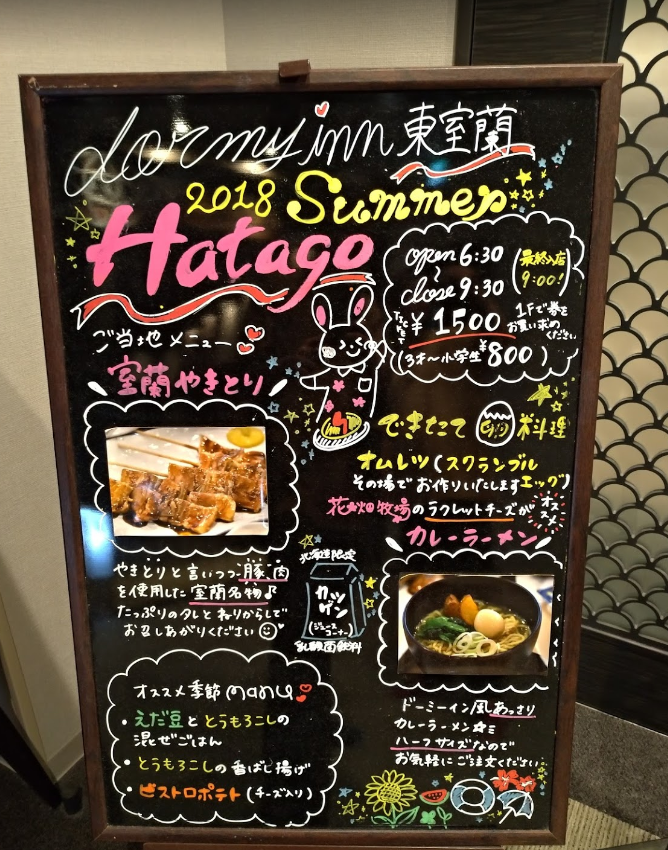 dormy inn 東室蘭
2018 Summer
Hatago
open 6:30
〜
close 9:30
(最終入店
9:00!)
¥1500
1Fで券を
お買い求め
ください
(3才〜小学生¥800)
ご当地メニュー
室蘭やきとり
やきとりと言いつつ豚肉
を使用した室蘭名物♪
たっぷりのタレとねりからしで
お召しあがりください
できたて 卵 料理
オムレツ(スクランブル
エッグ)
その場でお作りいたします
花畑牧場のラクレットチーズが
オススメ
カレーラーメン
ドーミーイン風あっさり
カレーラーメン
ハーフサイズなので
お気軽にご注文ください
北海道限定
カツゲン
(ジュースコーナー)
乳酸菌飲料
オススメ季節menu
・えだ豆ととうもろこしの
混ぜごはん
・とうもろこしの香ばし揚げ
・ビストロポテト(チーズ入り)